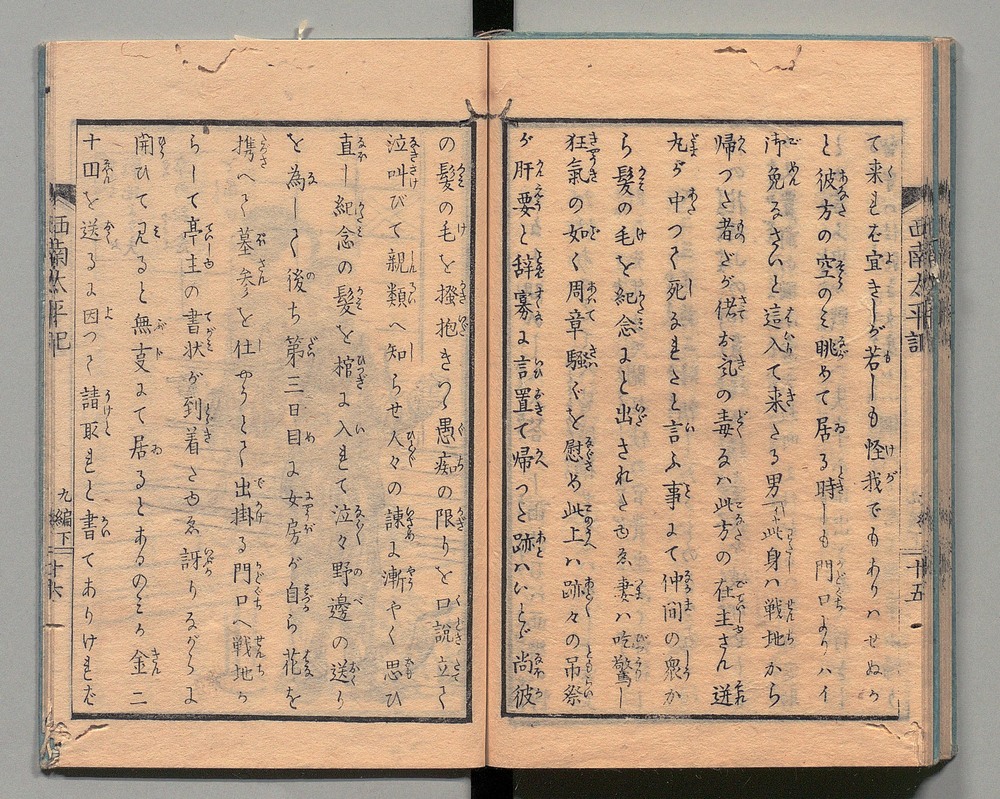 西南太平記
十五
て来れば宜きが若しも怪我でもありハせぬか
と彼方の空のミ眺めて居る時しも門口よりハイ
御免なさいと這入て来たる男此身ハ戦地から
帰つた者だが偖お気の毒なハ此方の在主さん逆
丸が中つて死なれたと言ふ事にて仲间の衆か
ら髪の毛を紀念にと出されたゆゑ妻ハ吃驚し
狂氣の如く周章騒ぐを慰め此上ハ跡々の吊祭
が肝要と辞寡に言置て帰つた跡ハいとど尚彼
の髪の毛を掻抱きつゝ愚痴の限りを口説立て
泣叫びて親類へ知らせ人々の諫に漸やく思ひ
直し紀念の髪を棺に入れて泣々野邊の送り
を為して後ち第三日目に女房が自ら花を
携へて墓参を仕やうとて出掛る門口へ戦地か
らして亭主の書状が到着たゆゑ訝りながらよ
開ひて見ると無支にて居るとあるのミか金二
十円を送るに因つて請取れと書てありければ
西南太平記
九編下
十六